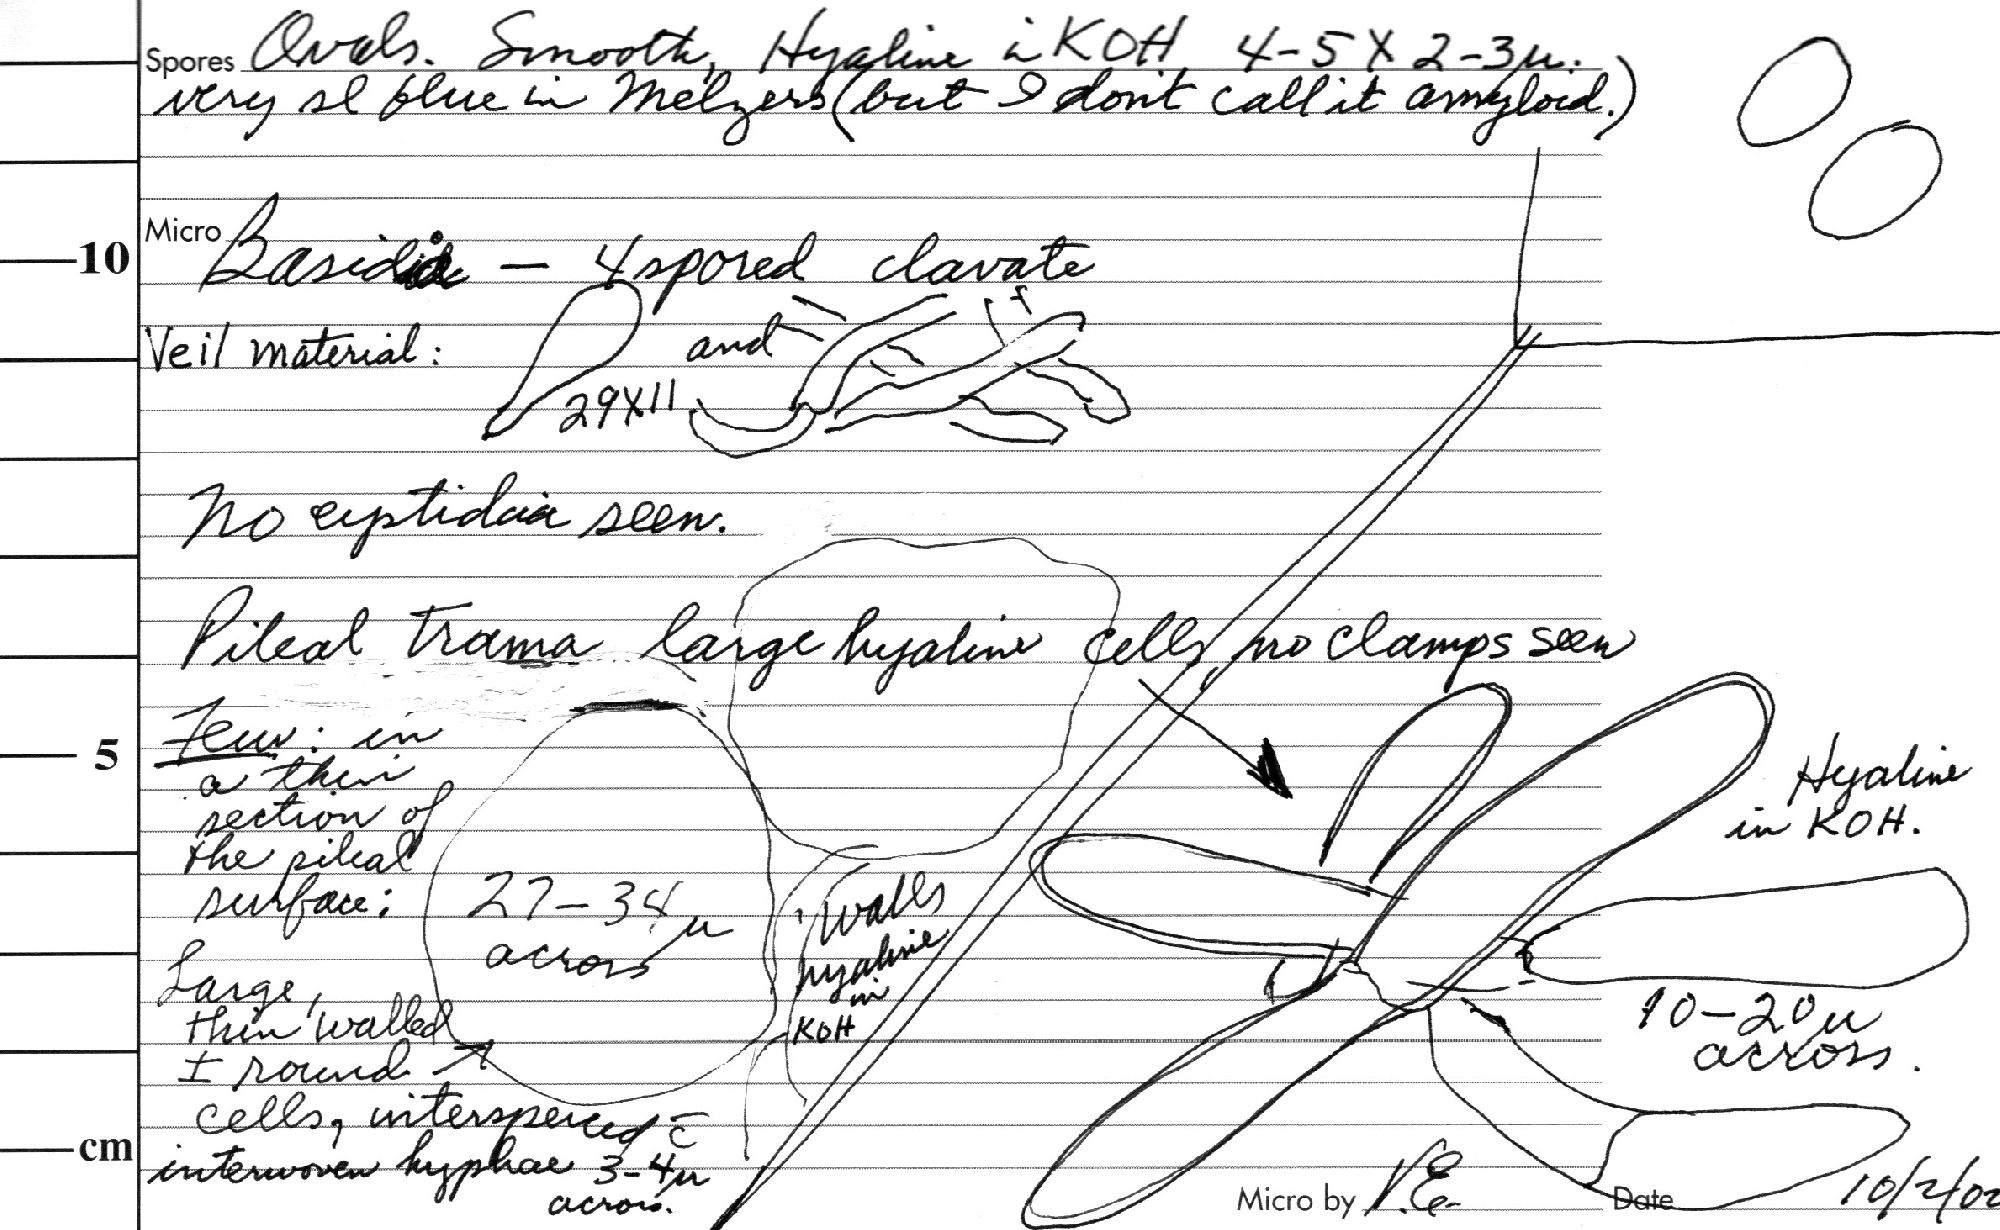 Spores Ovals. Smooth, Hyaline in KOH 4-5 X 2-3µ.
very sl blue in Melzers (but I don't call it amyloid.)
Micro
10
Basidia — 4 spored clavate
Veil material:
and
29X11
No cystidia seen.
Pileal trama large hyaline cells, no clamps seen
Few: in
a thin
section of
the pileal
surface:
5
27-34µ
across
Walls
hyaline
in
KOH
Hyaline
in KOH.
Large,
thin walled
± round
cells, interspersed c̄
interwoven hyphae 3-4µ
across.
10-20µ
across.
cm
Micro by V.E. Date 10/2/02